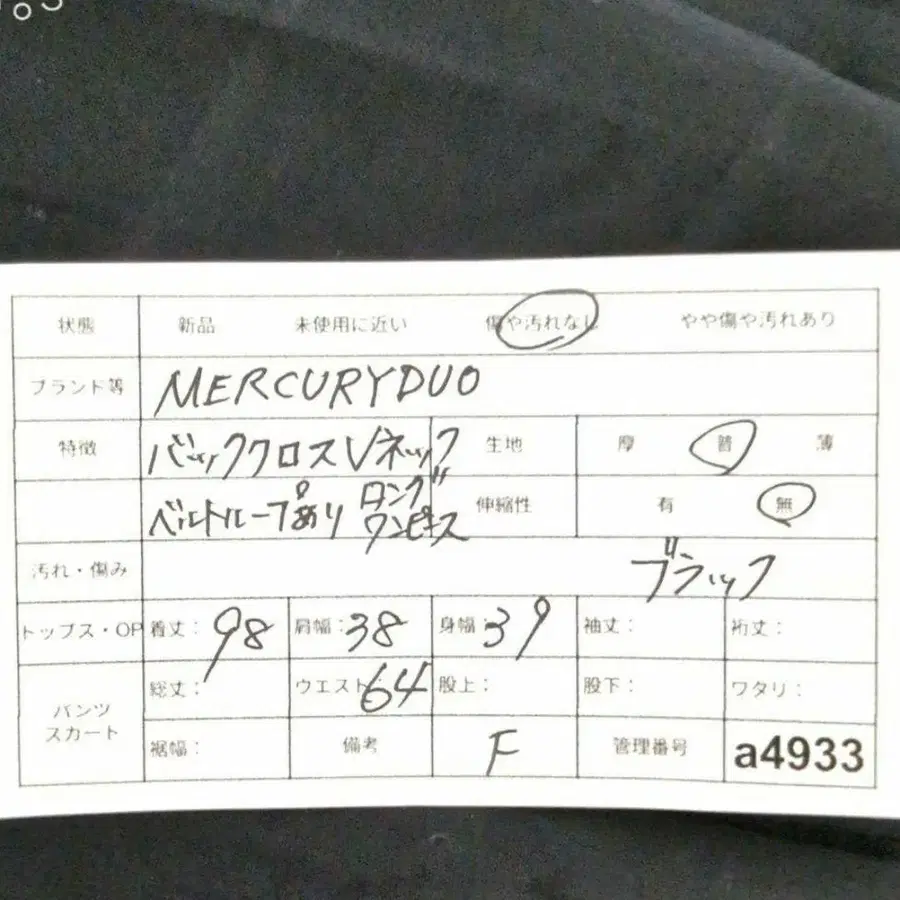 状態 新品 未使用に近い 傷や汚れなし やや傷や汚れあり
ブランド等 MERCURYDUO
特徴 バッククロスVネック 生地 厚 普 薄
ベルトループあり ロング
ワンピース 伸縮性 有 無
汚れ・傷み ブラック
トップス・OP 着丈: 98 肩幅: 38 身幅: 39 袖丈: 裄丈:
パンツ
スカート 総丈: ウエスト: 64 股上: 股下: ワタリ:
裾幅: 備考 F 管理番号 a4933